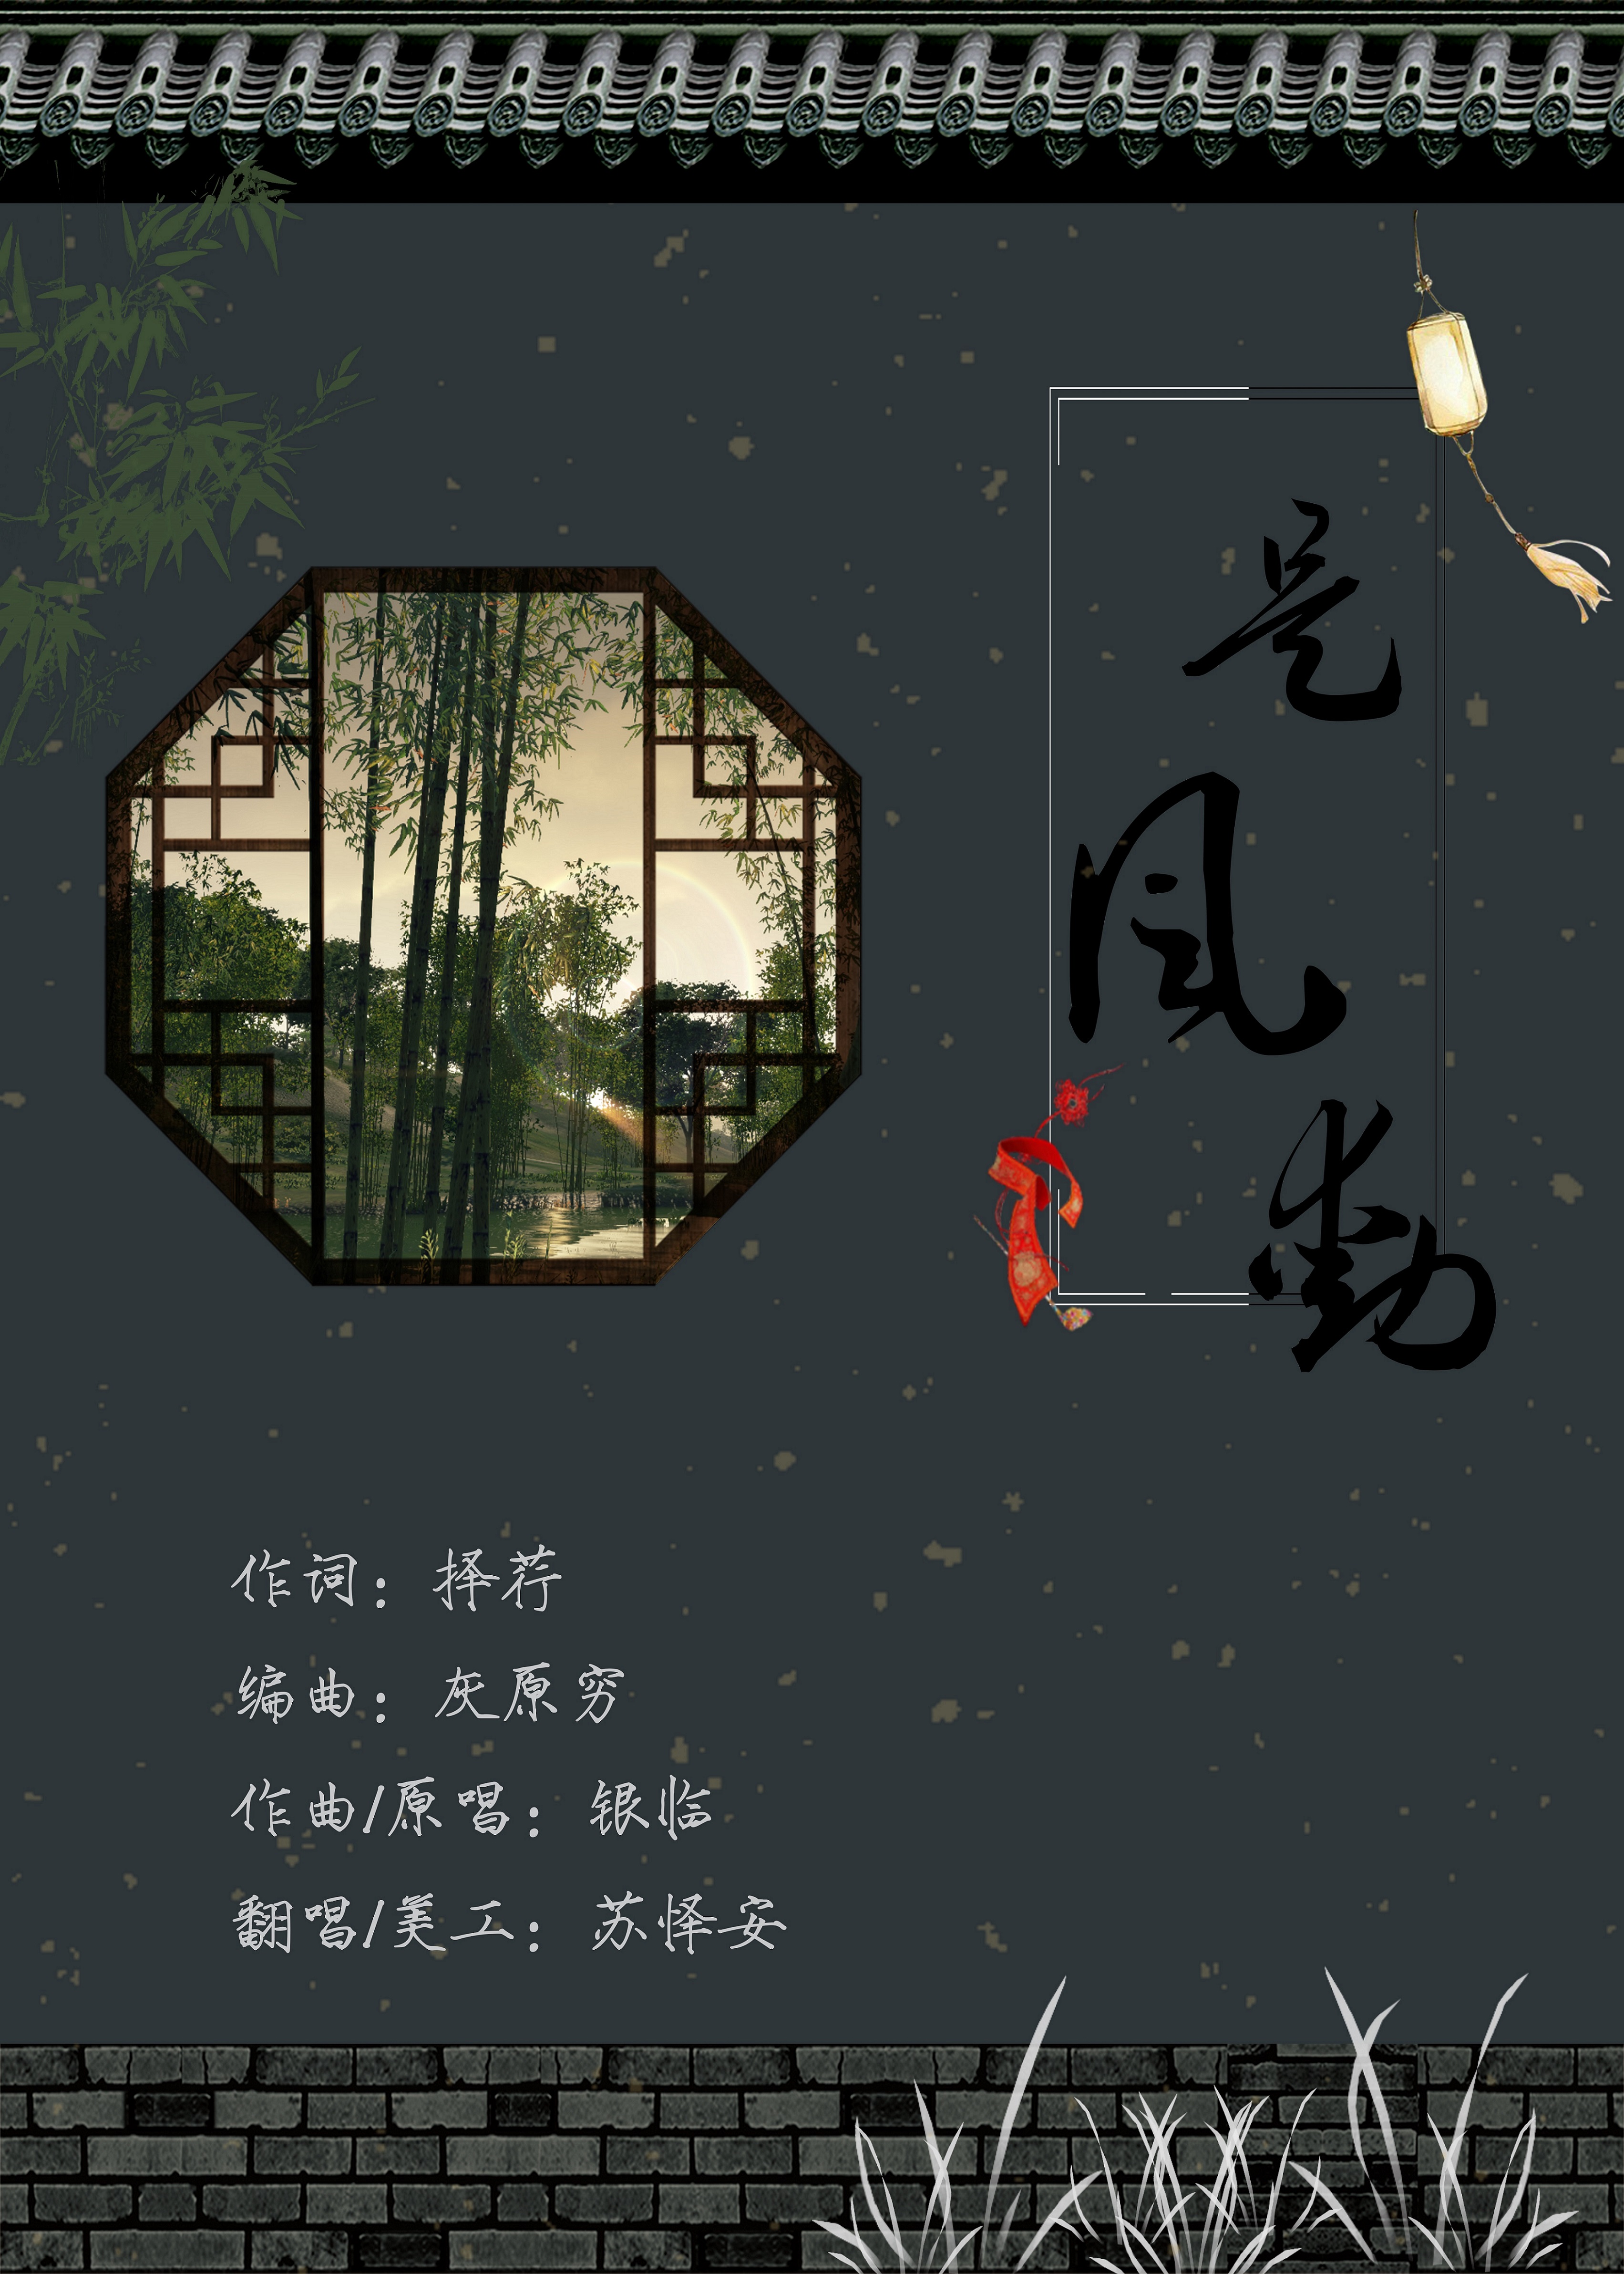 是风动
作词：择荇
编曲：灰原穷
作曲/原唱：银临
翻唱/美工：苏怿安